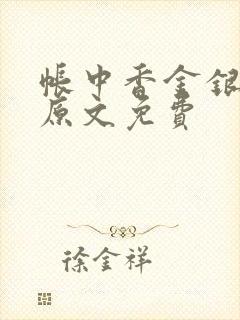 帐中香金银
原文免费
徐金祥